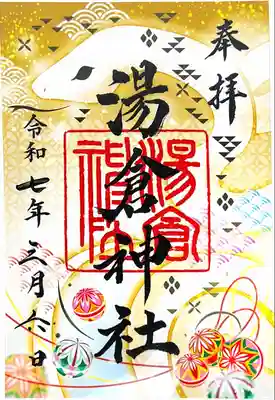 奉拝
湯倉神社
湯倉神社印
令和七年三月六日